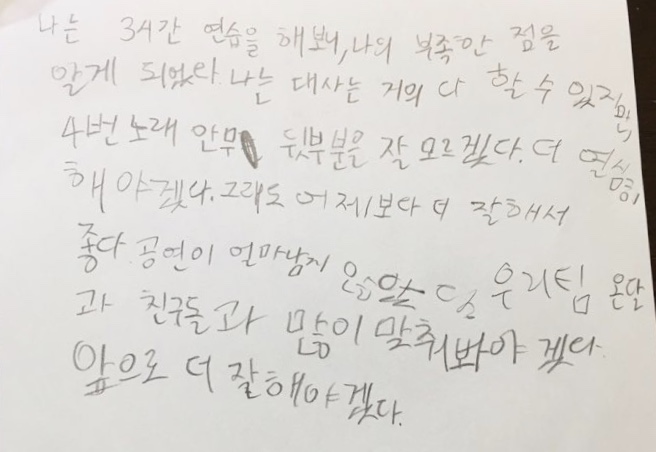 나는 3시간 연습을 해보니, 나의 부족한 점을
알게 되었다. 나는 대사는 거의 다 할 수 있지만,
4번 노래 안무 뒷부분을 잘 모르겠다. 더 연습
해야겠다. 그래도 어제보다 더 잘해서
좋다. 공연이 얼마남지 우리팀 온달
과 친구들과 많이 맞춰봐야 겠다.
앞으로 더 잘해야겠다.